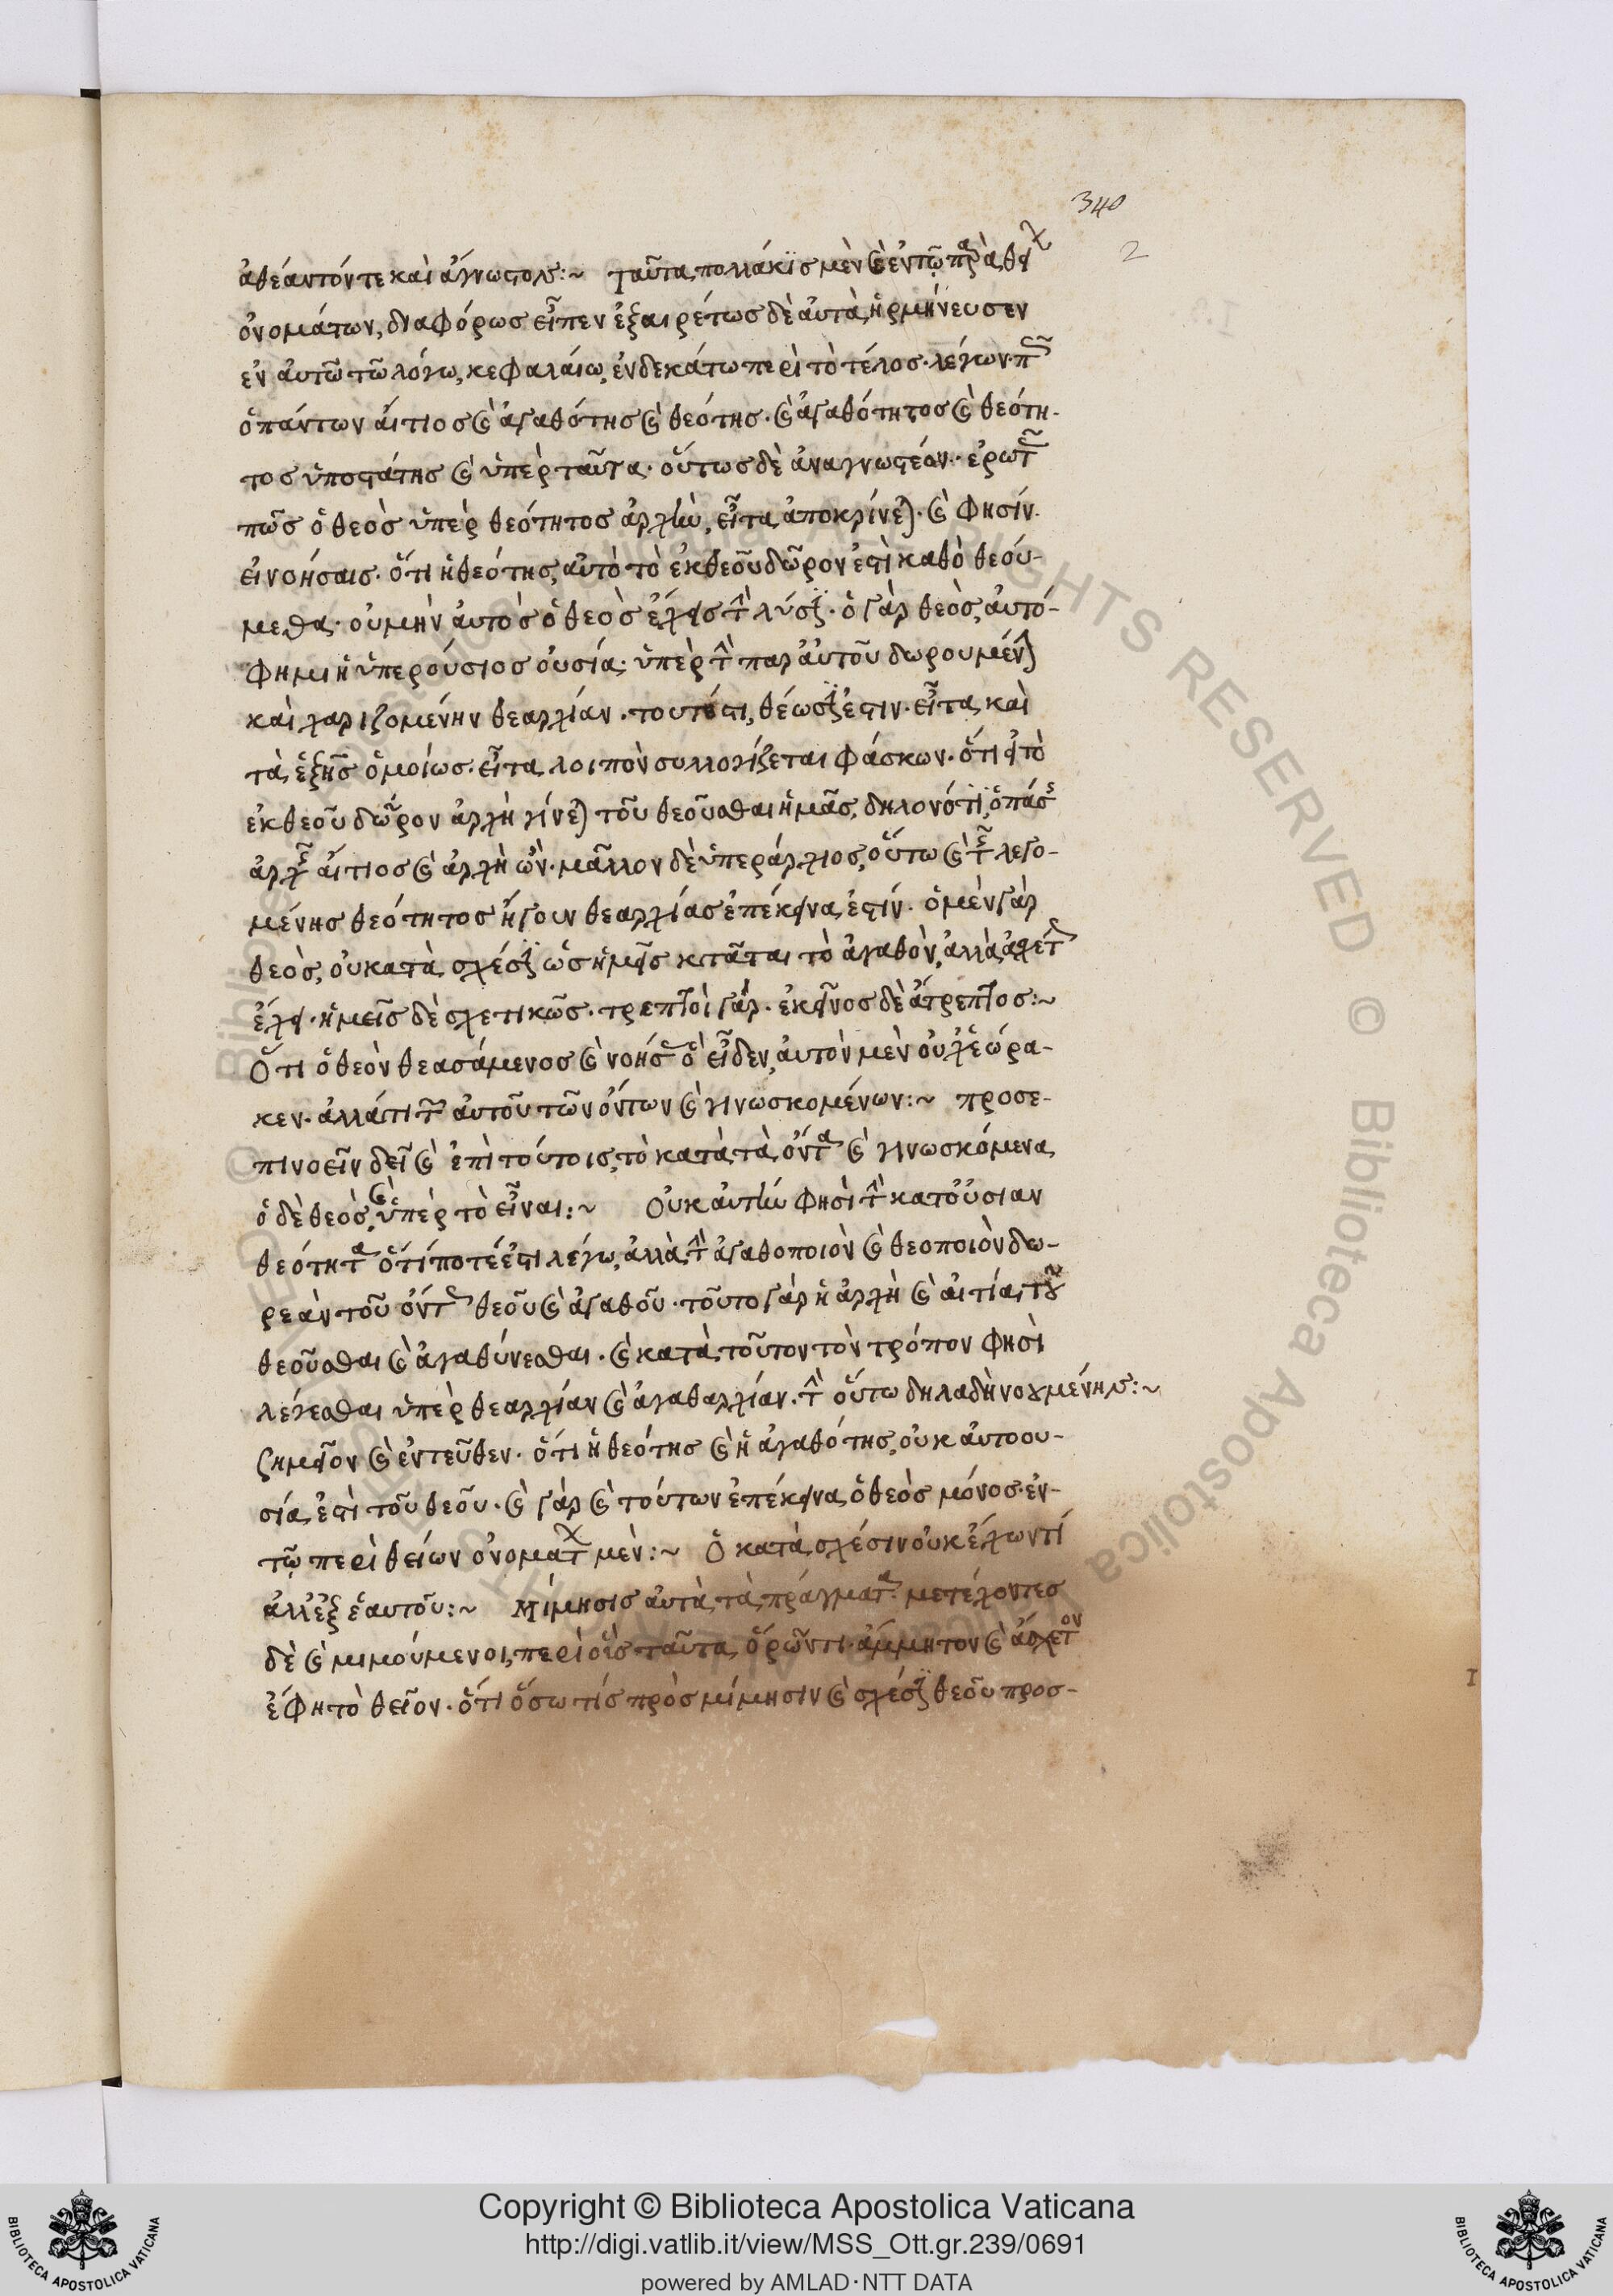 340
2
ἀθέατόν τε καὶ ἄγνωστον:~ ταῦτα πολλάκις μὲν καὶ ἐν τῷ
ὀνομάτων, διαφόρως εἶπεν ἐξαιρέτως δὲ αὐτὰ, ἡρμήνευσεν
ἐν αὐτῶ τῶ λόγω, κεφαλαίω, ἑνδεκάτω περὶ τὸ τέλος· λέγων·
ὁ πάντων αἴτιος καὶ ἀγαθότης καὶ θεότης· καὶ ἀγαθότητος καὶ θεότη-
τος ὑποστάτης καὶ ὑπὲρ ταῦτα· οὕτως δὲ ἀναγνωστέον·
πῶς ὁ θεὸς ὑπὲρ θεότητος ἀρχὴν, εἶτα ἀποκρίνεται· καὶ φησίν·
εἰ νοήσαις· ὅτι ἡ θεότης, αὐτὸ τὸ ἐκ θεοῦ δῶρον ἐστὶ καθὸ θεού-
μεθα· οὐ μὴν αὐτὸς ὁ θεὸς ἔχεις τὴν λύσιν· ὁ γὰρ θεὸς, αὐτό-
φημι ἡ ὑπερούσιος οὐσία· ὑπὲρ τὴν παρ αὐτοῦ δωρουμένην
καὶ χαριζομένην θεαρχίαν· τουτέστι, θέωσιν ἐστιν· εἶτα καὶ
τὰ ἑξῆς ὁμοίως· εἶτα λοιπὸν συλλογίζεται φάσκων· ὅτι εἰ τὸ
ἐκ θεοῦ δῶρον ἀρχὴ γίνεται τοῦ θεοῦσθαι ἡμᾶς, δηλονότι, ὁ πάσης
ἀρχῆς αἴτιος καὶ ἀρχὴ ὢν· μᾶλλον δὲ ὑπεράρχιος, οὕτω καὶ τῆς λεγο-
μένης θεότητος ἤγουν θεαρχίας ἐπέκεινα ἐστίν· ὁ μὲν γὰρ
θεὸς, οὐ κατὰ σχέσιν ὡς ἡμεῖς κτᾶται τὸ ἀγαθὸν, ἀλλὰ
ἔχει· ἡμεῖς δὲ σχετικῶς· τρεπτοὶ γὰρ· ἐκεῖνος δὲ ἄτρεπτος:~
Ὅτι ὁ θεὸν θεασάμενος καὶ νοήσας ὃ εἶδεν, αὐτὸν μὲν οὐχ ἑώρα-
κεν· ἀλλά τι τῶν αὐτοῦ τῶν ὄντων καὶ γινωσκομένων:~ προσε-
πινοεῖν δεῖ καὶ ἐπὶ τούτοις, τὸ κατὰ τὰ ὄντα καὶ γινωσκόμενα
ὁ δὲ θεὸς, καὶ ὑπὲρ τὸ εἶναι:~ Οὐκ αὐτὴν φησὶ τὴν κατ οὐσιαν
θεότητα ὅτί ποτέ ἐστι λέγω, ἀλλὰ τὴν ἀγαθοποιὸν καὶ θεοποιὸν δω-
ρεὰν τοῦ ὄντως θεοῦ καὶ ἀγαθοῦ· τοῦτο γὰρ ἡ ἀρχὴ καὶ αἰτία, τοῦ
θεοῦσθαι καὶ ἀγαθύνεσθαι· καὶ κατὰ τοῦτον τὸν τρόπον φησὶ
λέγεσθαι ὑπὲρ θεαρχίαν καὶ ἀγαθαρχίαν· τὴν οὕτω δηλαδὴ νοουμένην:~
ζημεῖον καὶ ἐντεῦθεν· ὅτι ἡ θεότης καὶ ἡ ἀγαθότης, οὐκ αὐτοου-
σία ἐστὶ τοῦ θεοῦ· καὶ γὰρ καὶ τούτων ἐπέκεινα ὁ θεὸς μόνος· ἐν-
τῷ περὶ θείων ὀνομάτων μὲν:~ Ὁ κατὰ σχέσιν οὐκ ἔχων τί
ἀλλ ἐξ ἑαυτοῦ:~ Μίμησις αὐτὰ τὰ πράγματα· μετέχοντες
δὲ καὶ μιμούμενοι, περὶ οἷς ταῦτα ὁρῶντι· ἀμίμητον καὶ ἄσχετον
ἔφη τὸ θεῖον· ὅτι ὅσω τίς πρὸς μίμησιν καὶ σχέσιν θεοῦ προσ-
© Biblioteca Apostolica Vaticana ALL RIGHTS RESERVED
Copyright © Biblioteca Apostolica Vaticana
http://digi.vatlib.it/view/MSS_Ott.gr.239/0691
powered by AMLAD·NTT DATA
BIBLIOTECA APOSTOLICA VATICANA
BIBLIOTECA APOSTOLICA VATICANA